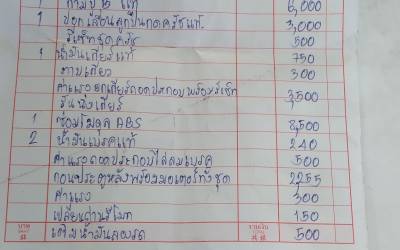 1 ก้ามปู 2 แท้ 6,000
1 ปลอกเลื่อนลูกปืนกดครัชแท้ 3,000
รีเซ็ทชุดครัช 500
1 น้ำมันเกียร์แท้ 750
ตามเกียว 300
ค่าแรงยกเกียร์ถอดประกอบพร้อมรีเซ็ท 3,500
เกียร์
1 ซ่อมโมดูล ABS 8,500
2 น้ำมันเบรคแท้ 240
ค่าแรงถอดประกอบไล่ลมเบรค 500
กลอนประตูหลังพร้อมมอเตอร์ทั้งชุด 2,255
ค่าแรง 300
เปลี่ยนถ่านรีโมท 150
เติมน้ำมันลองรถ 500